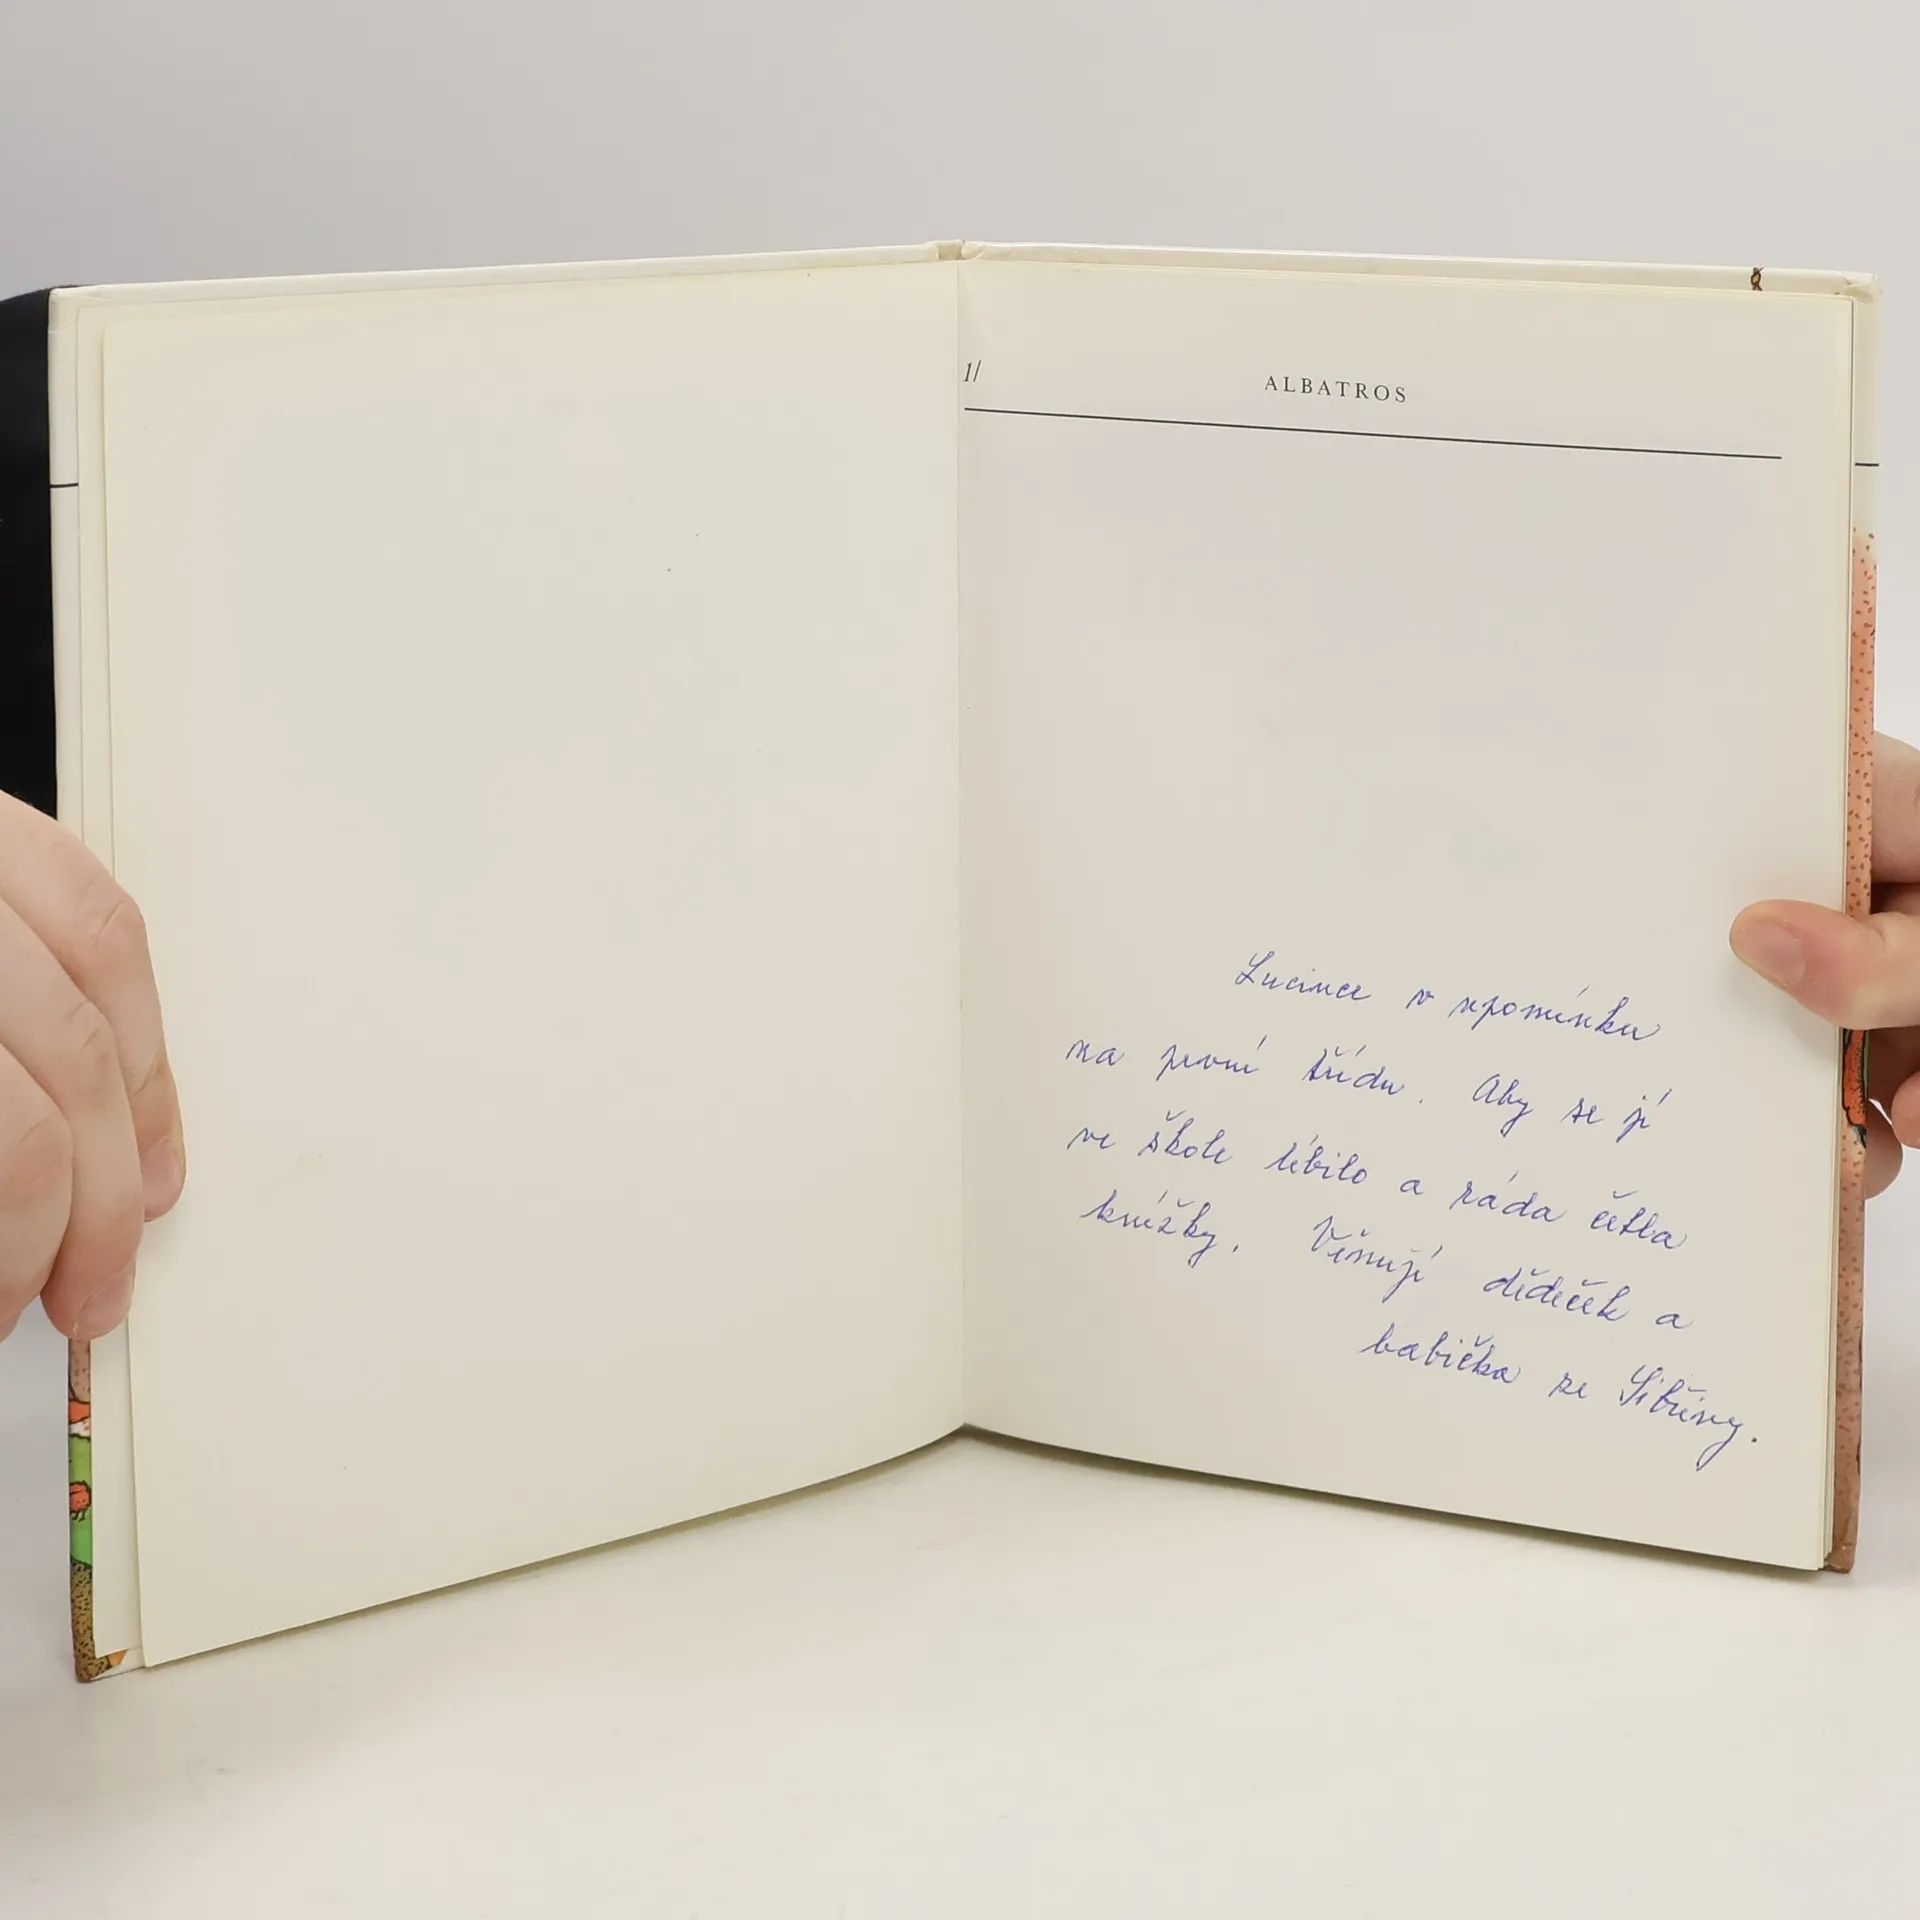 1/ ALBATROS
Lucince v upomínku
na první třídu. Aby se jí
ve škole líbilo a ráda četla
knížky. Věnují dědeček a
babička ze Sibřiny.